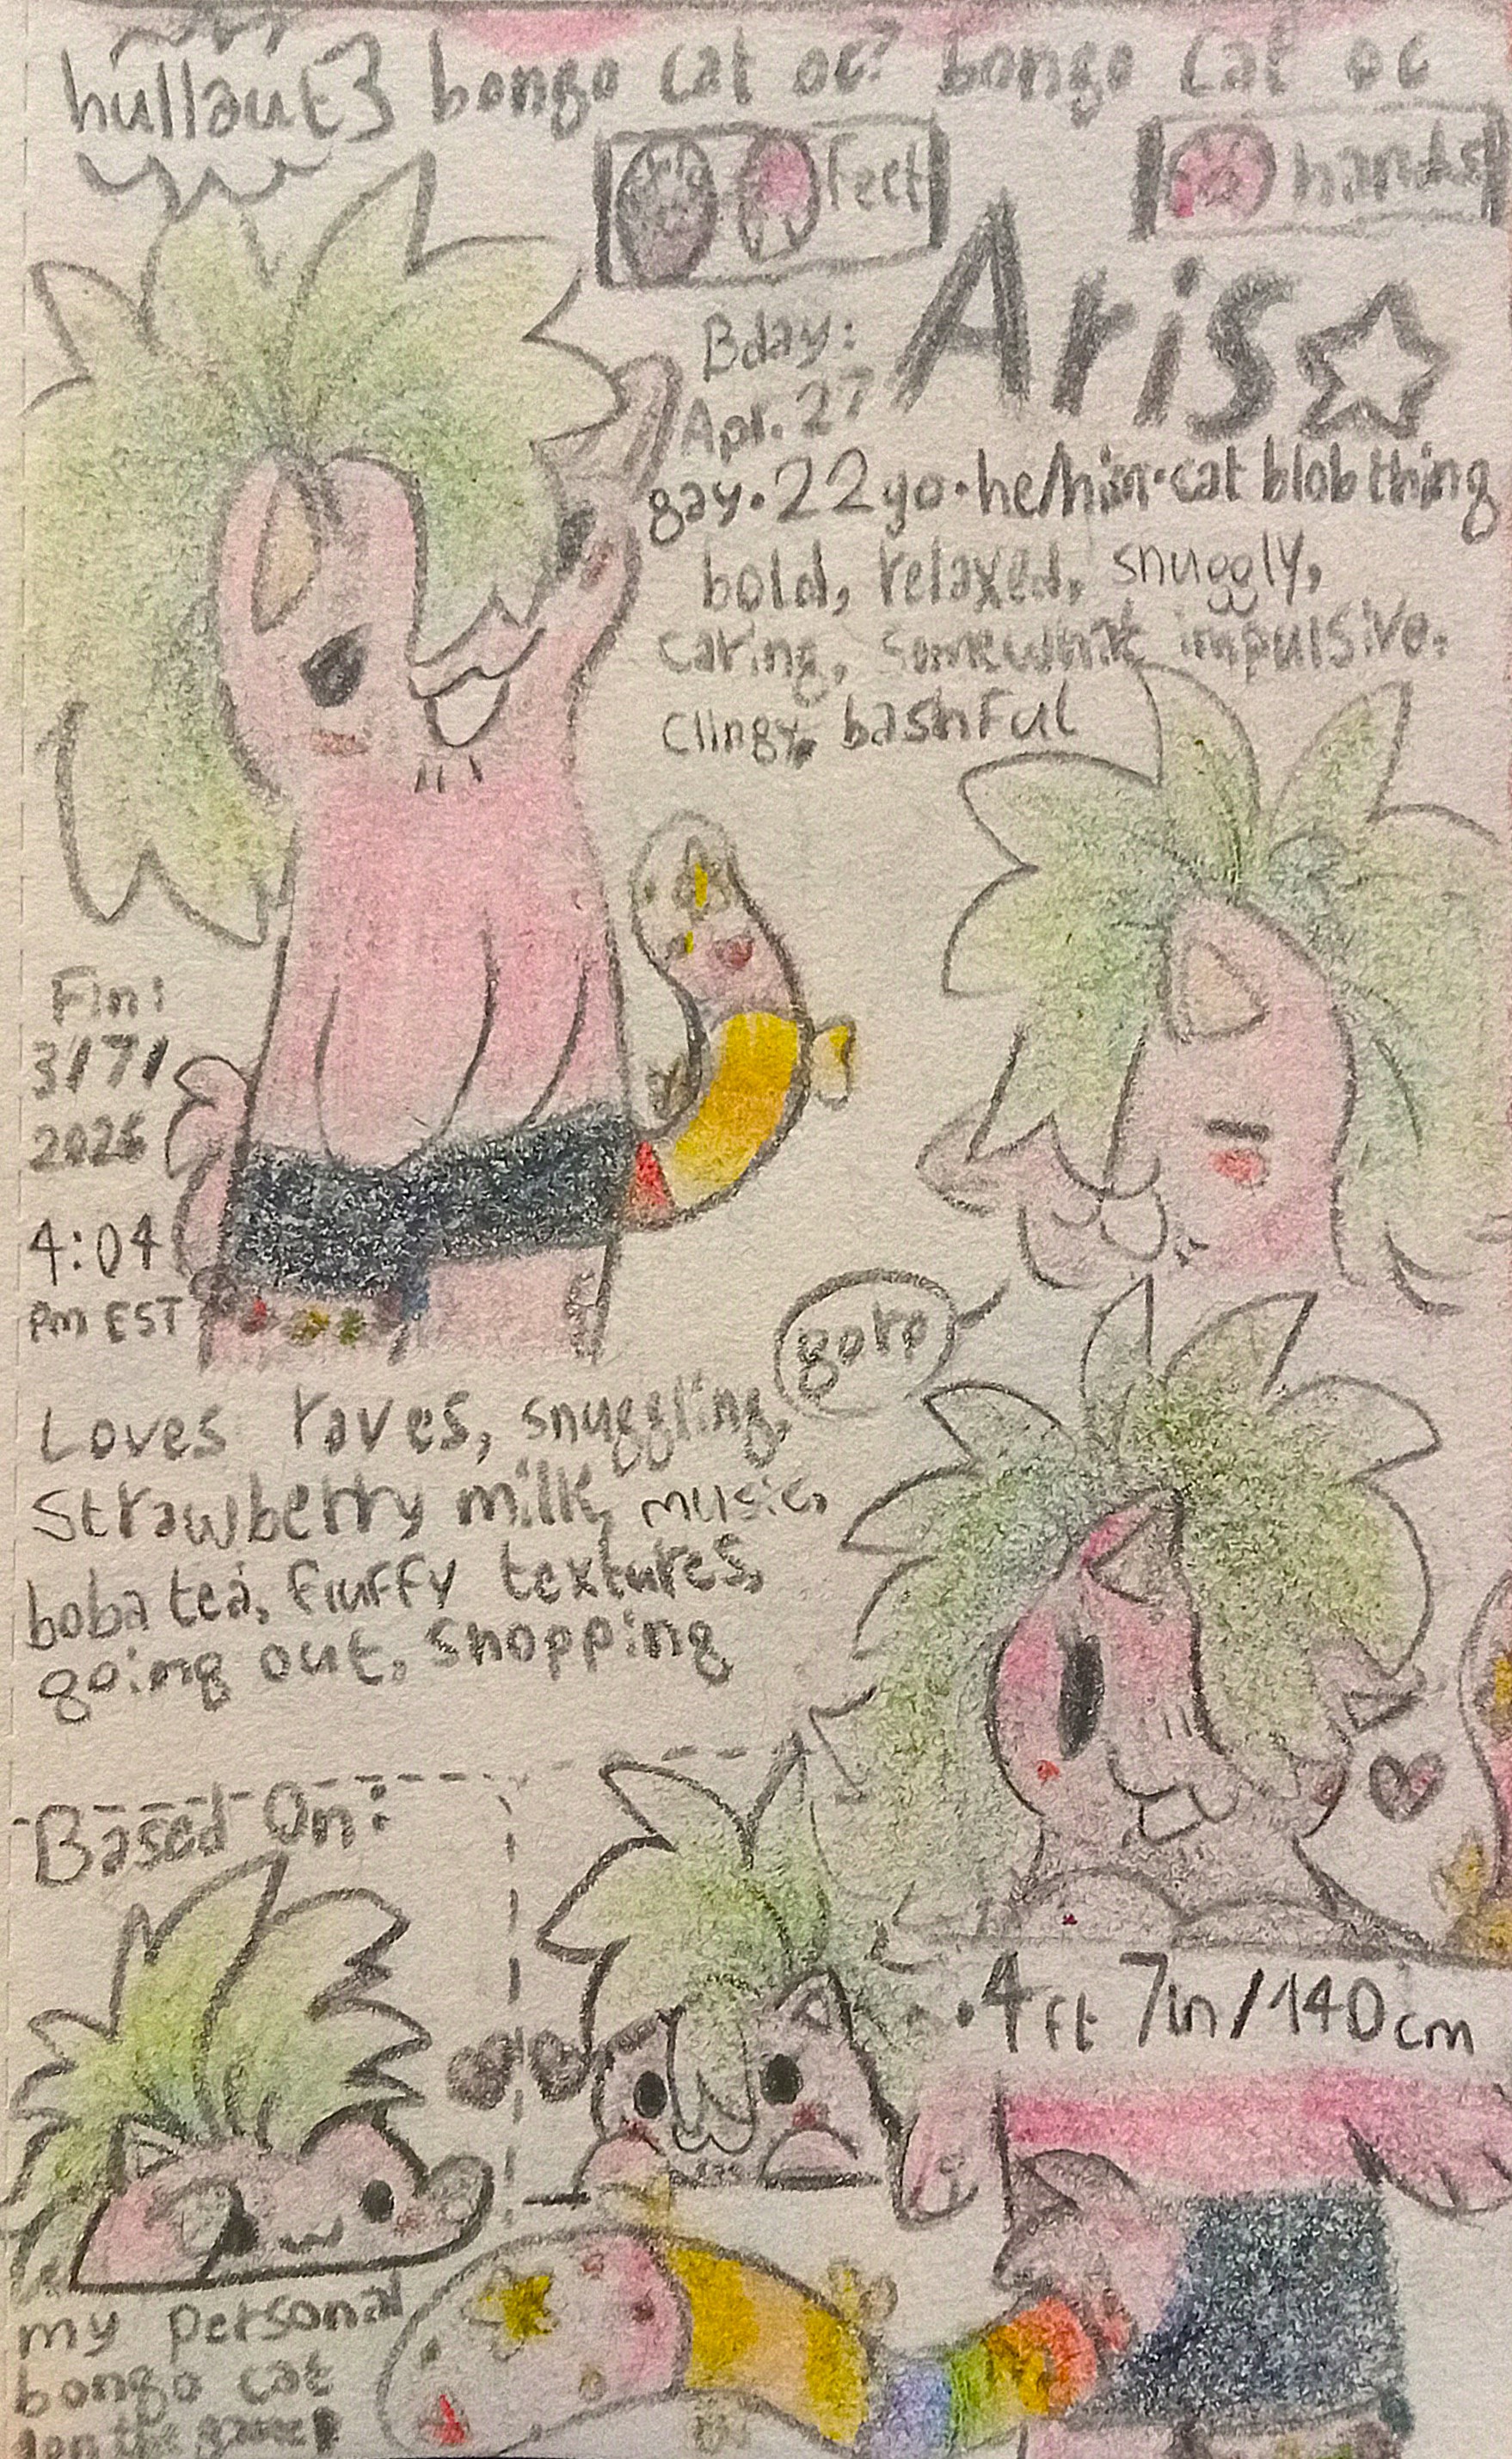 hullaut3 bongo cat oc? bongo cat oc
feet
hands
Aris
Bday:
Apr. 27
gay • 22yo • he/him • cat blob thing
bold, relaxed, snuggly,
caring, somewhat impulsive,
clingy, bashful
Fin:
3/7/
2026
4:04
PM EST
Loves raves, snuggling,
Strawberry milk, music,
boba tea, fluffy textures,
going out, shopping
Based On:
• 4ft 7in/140cm
my personal
bongo cat